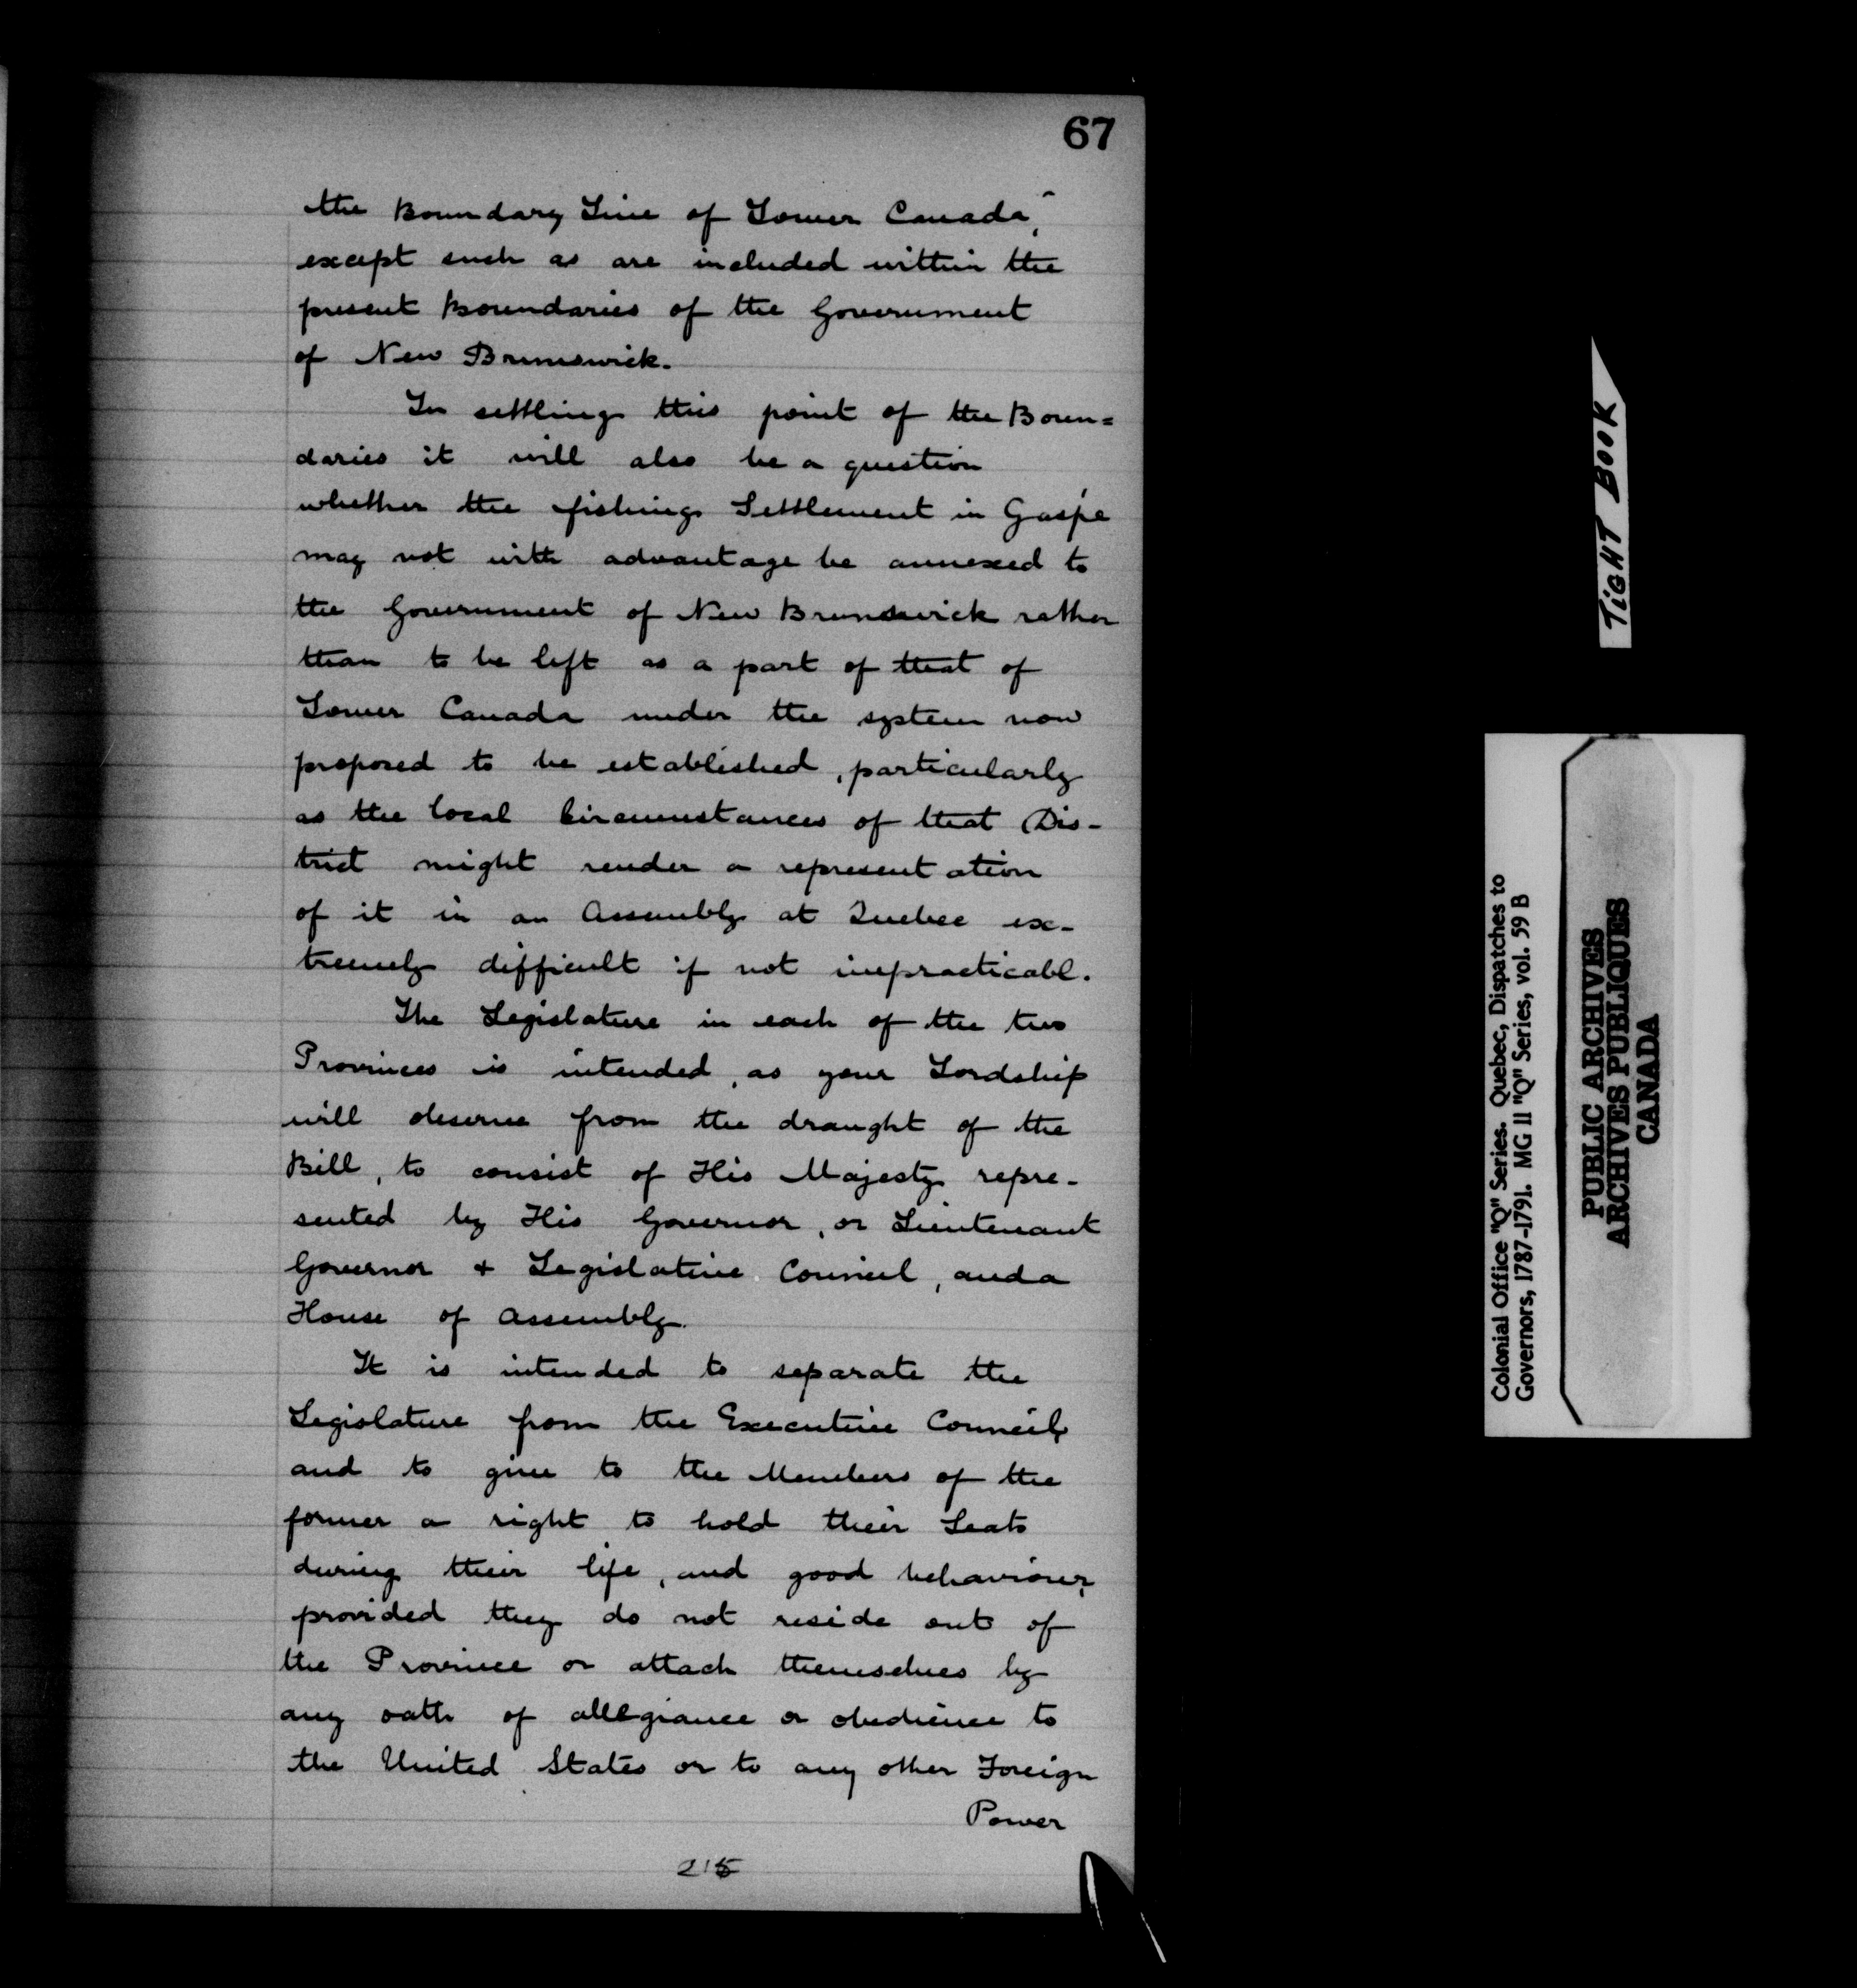 67
the Boundary Line of Lower Canada,"
except such as are included within the
present Boundaries of the Government
of New Brunswick.
In settling this point of the Boun=
daries it will also be a question
whether the fishing Settlement in Gaspé
may not with advantage be annexed to
the Government of New Brunswick rather
than to be left as a part of that of
Lower Canada under the system now
proposed to be established, particularly
as the local Circumstances of that Dis-
trict might render a representation
of it in an Assembly at Quebec ex-
tremely difficult if not impracticabl.
The Legislature in each of the two
Provinces is intended, as your Lordship
will observe from the draught of the
Bill, to consist of His Majesty repre-
sented by His Governor, or Lieutenant
Governor + Legislative Council, and a
House of Assembly.
It is intended to separate the
Legislature from the Executive Council,
and to give to the Members of the
former a right to hold their Seats
during their life, and good behaviour,
provided they do not reside out of
the Province or attach themselves by
any oath of allegiance or obedience to
the United States or to any other Foreign
Power
215
TIGHT BOOK
Colonial Office "Q" Series. Quebec, Dispatches to
Governors, 1787-1791. MG 11 "Q" Series, vol. 59 B
PUBLIC ARCHIVES
ARCHIVES PUBLIQUES
CANADA